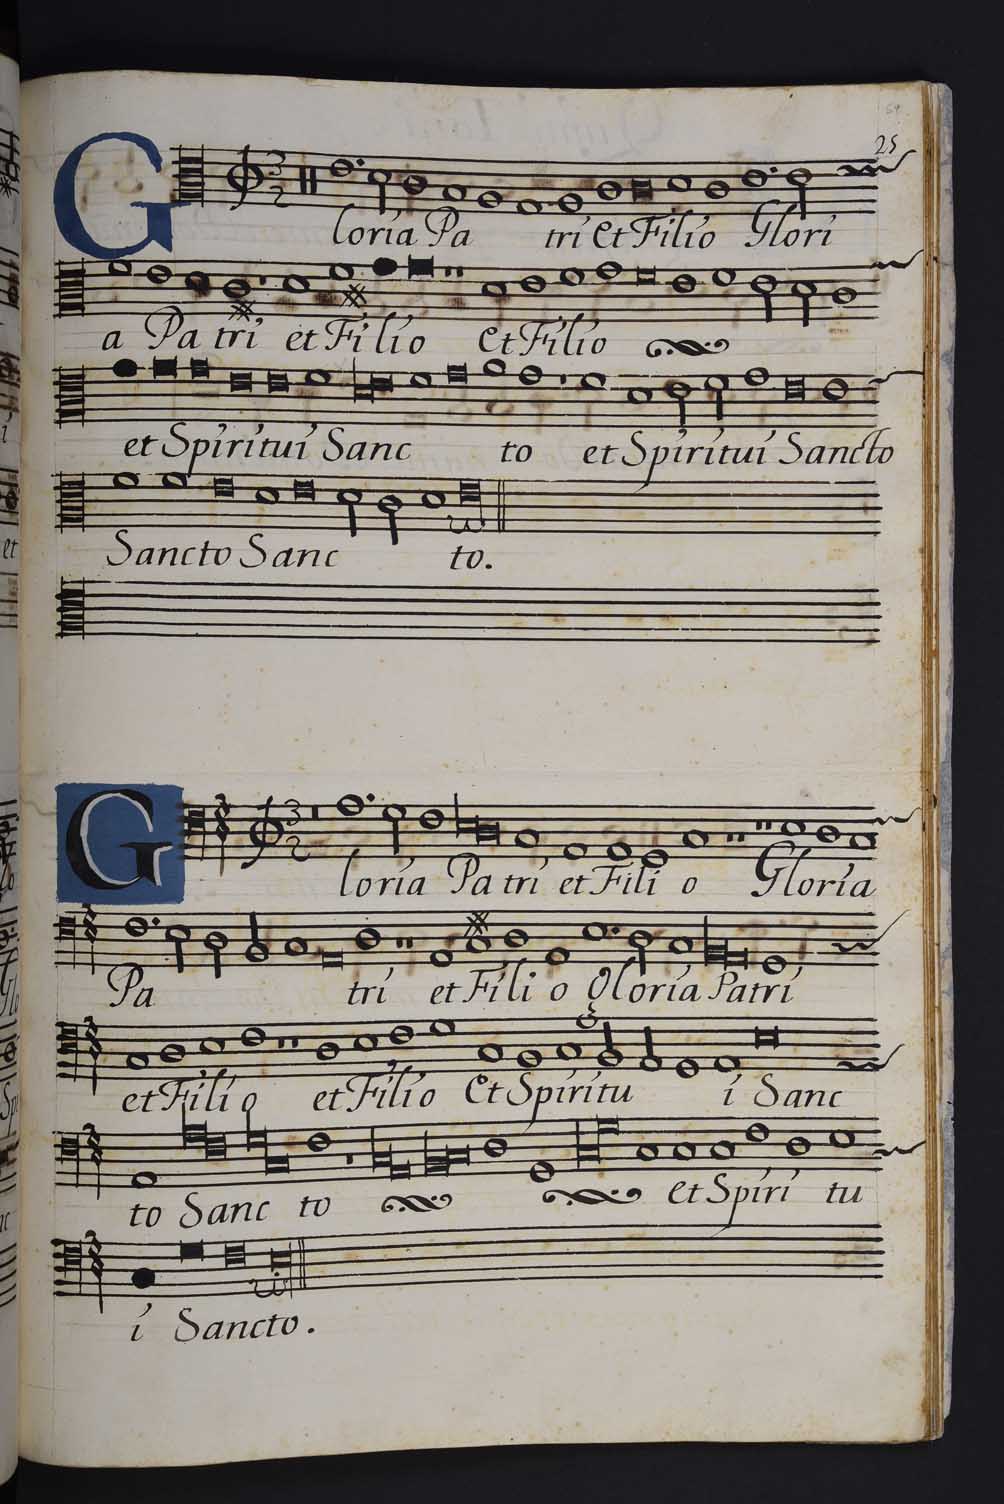 25
Gloria Pa tri et Filio Glori
a Pa tri et Filio et Filio
et Spiritui Sanc to et Spiritui Sancto
Sancto Sanc to.
Gloria Pa tri et Fili o Gloria
Pa tri et Fili o Gloria Patri
et Filio et Filio et Spiritu i Sanc
to Sanc to et Spiri tu
i Sancto.